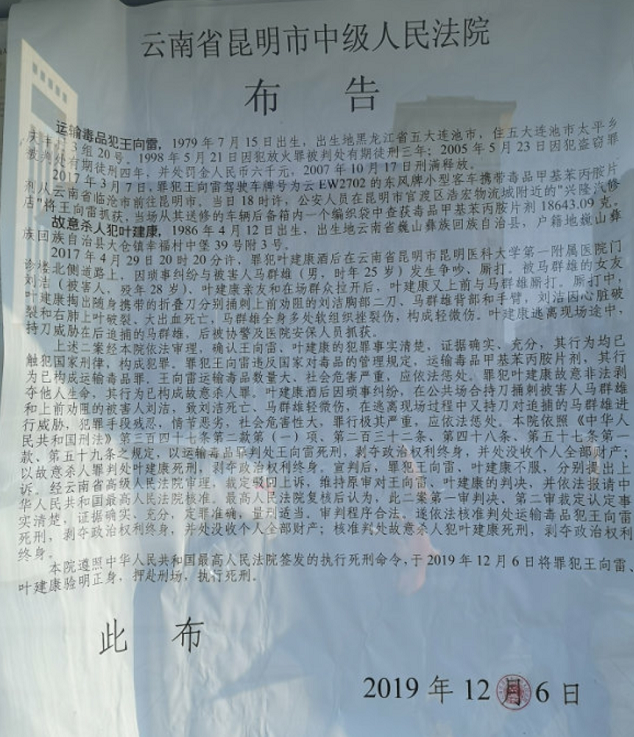 云南省昆明市中级人民法院
布 告
运输毒品犯王向雷,1979年7月15日出生,出生地黑龙江省五大连池市,住五大连池市太平乡
庆丰村3组20号。1998年5月21日因犯放火罪被判处有期徒刑三年;2005年5月23日因犯盗窃罪
被判处有期徒刑四年,并处罚金人民币六千元,2007年10月17日刑满释放。
2017年3月7日,罪犯王向雷驾驶车牌号为云EW2702的东风牌小型客车携带毒品甲基苯丙胺片
剂从云南省临沧市前往昆明市。当日18时许,公安人员在昆明市官渡区浩宏物流城附近的“兴隆汽修
店”将王向雷抓获,当场从其送修的车辆后备箱内一个编织袋中查获毒品甲基苯丙胺片剂18643.09克。
故意杀人犯叶建康,1986年4月12日出生,出生地云南省巍山彝族回族自治县,户籍地巍山彝
族回族自治县大仓镇幸福村中堡39号附3号。
2017年4月29日20时20分许,罪犯叶建康酒后在云南省昆明市昆明医科大学第一附属医院门
诊楼北侧道路上,因琐事纠纷与被害人马群雄(男,时年25岁)发生争吵、厮打。被马群雄的女友
刘洁(被害人,殁年28岁)、叶建康亲友和在场群众拉开后,叶建康又上前与马群雄厮打。厮打中,
叶建康掏出随身携带的折叠刀分别捅刺上前劝阻的刘洁胸部二刀、马群雄背部和手臂,刘洁因心脏破
裂和右肺上叶破裂、大出血死亡,马群雄全身多处软组织挫裂伤,构成轻微伤。叶建康逃离现场途中,
持刀威胁在后追捕的马群雄,后被协警及医院安保人员抓获。
上述二案经本院依法审理,确认王向雷、叶建康的犯罪事实清楚,证据确实、充分,其行为均已
触犯国家刑律,构成犯罪。罪犯王向雷违反国家对毒品的管理规定,运输毒品甲基苯丙胺片剂,其行
为已构成运输毒品罪。王向雷运输毒品数量大、社会危害严重,应依法惩处。罪犯叶建康故意非法剥
夺他人生命,其行为已构成故意杀人罪。叶建康酒后因琐事纠纷,在公共场合持刀捅刺被害人马群雄
和上前劝阻的被害人刘洁,致刘洁死亡、马群雄轻微伤,在逃离现场过程中又持刀对追捕的马群雄进
行威胁,犯罪手段残忍,情节恶劣,社会危害性大,罪行极其严重,应依法惩处。本院依照《中华人
民共和国刑法》第三百四十七条第二款第(一)项、第二百三十二条、第四十八条、第五十七条第一
款、第五十九条之规定,以运输毒品罪判处王向雷死刑,剥夺政治权利终身,并处没收个人全部财产;
以故意杀人罪判处叶建康死刑,剥夺政治权利终身。宣判后,罪犯王向雷、叶建康不服,分别提出上
诉。经云南省高级人民法院审理,裁定驳回上诉,维持原审对王向雷、叶建康的判决,并依法报请中
华人民共和国最高人民法院核准。最高人民法院复核后认为,此二案第一审判决、第二审裁定认定事
实清楚,证据确实、充分,定罪准确,量刑适当。审判程序合法。遂依法核准判处运输毒品犯王向雷
死刑,剥夺政治权利终身,并处没收个人全部财产;核准判处故意杀人犯叶建康死刑,剥夺政治权利
终身。
本院遵照中华人民共和国最高人民法院签发的执行死刑命令,于2019年12月6日将罪犯王向雷、
叶建康验明正身,押赴刑场,执行死刑。
此 布
2019年12月6日